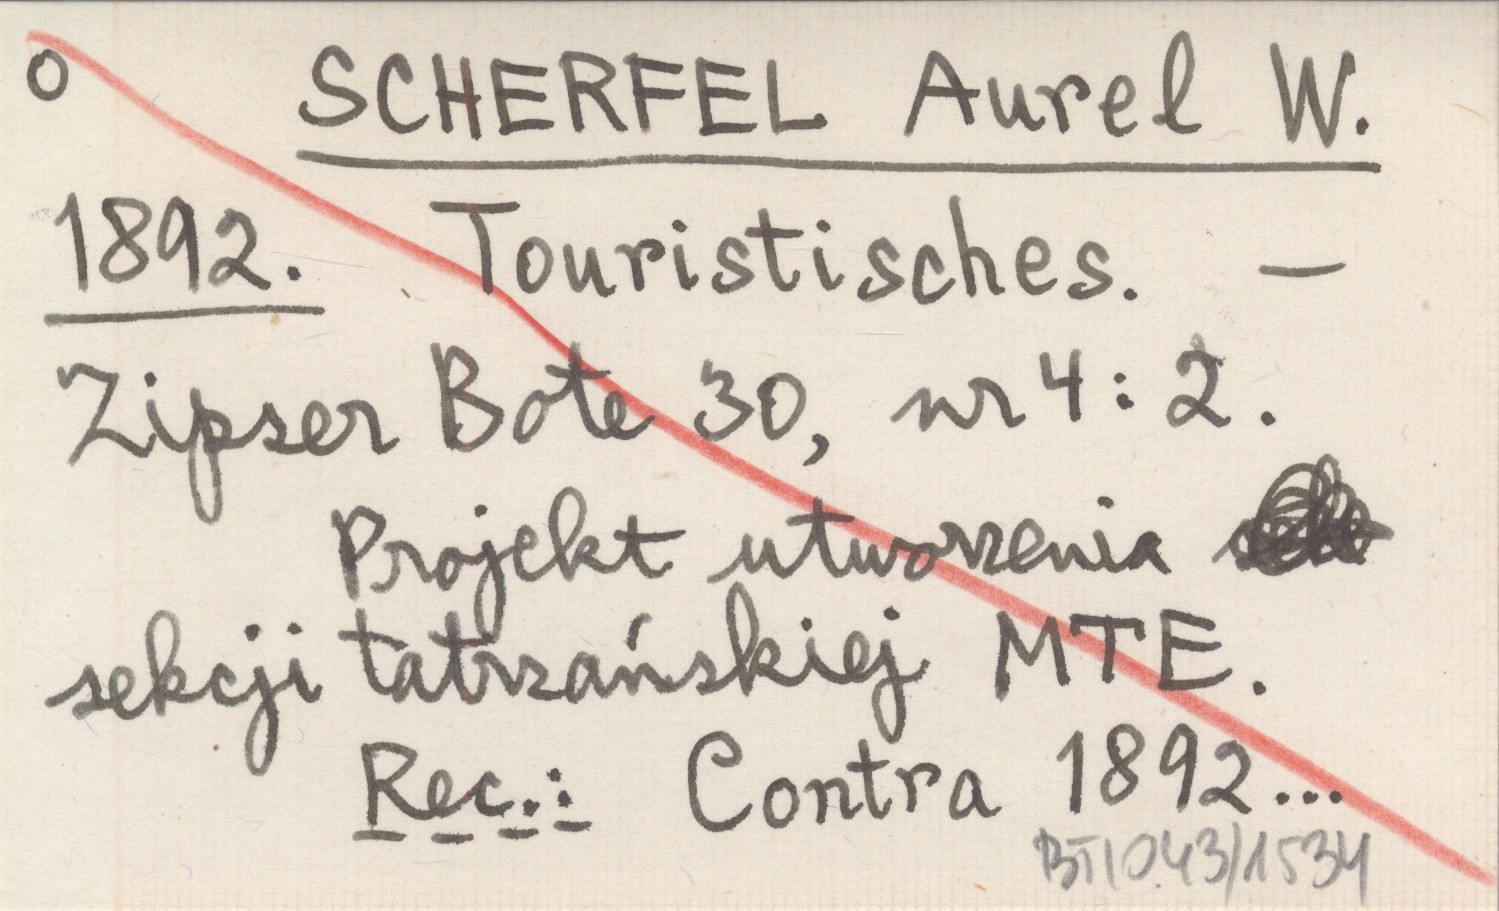 o SCHERFEL Aurel W.
1892. Touristisches. —
Zipser Bote 30, nr 4 : 2.
Projekt utworzenia
sekcji tatrzańskiej MTE.
Rec.: Contra 1892...
BT/043/1534